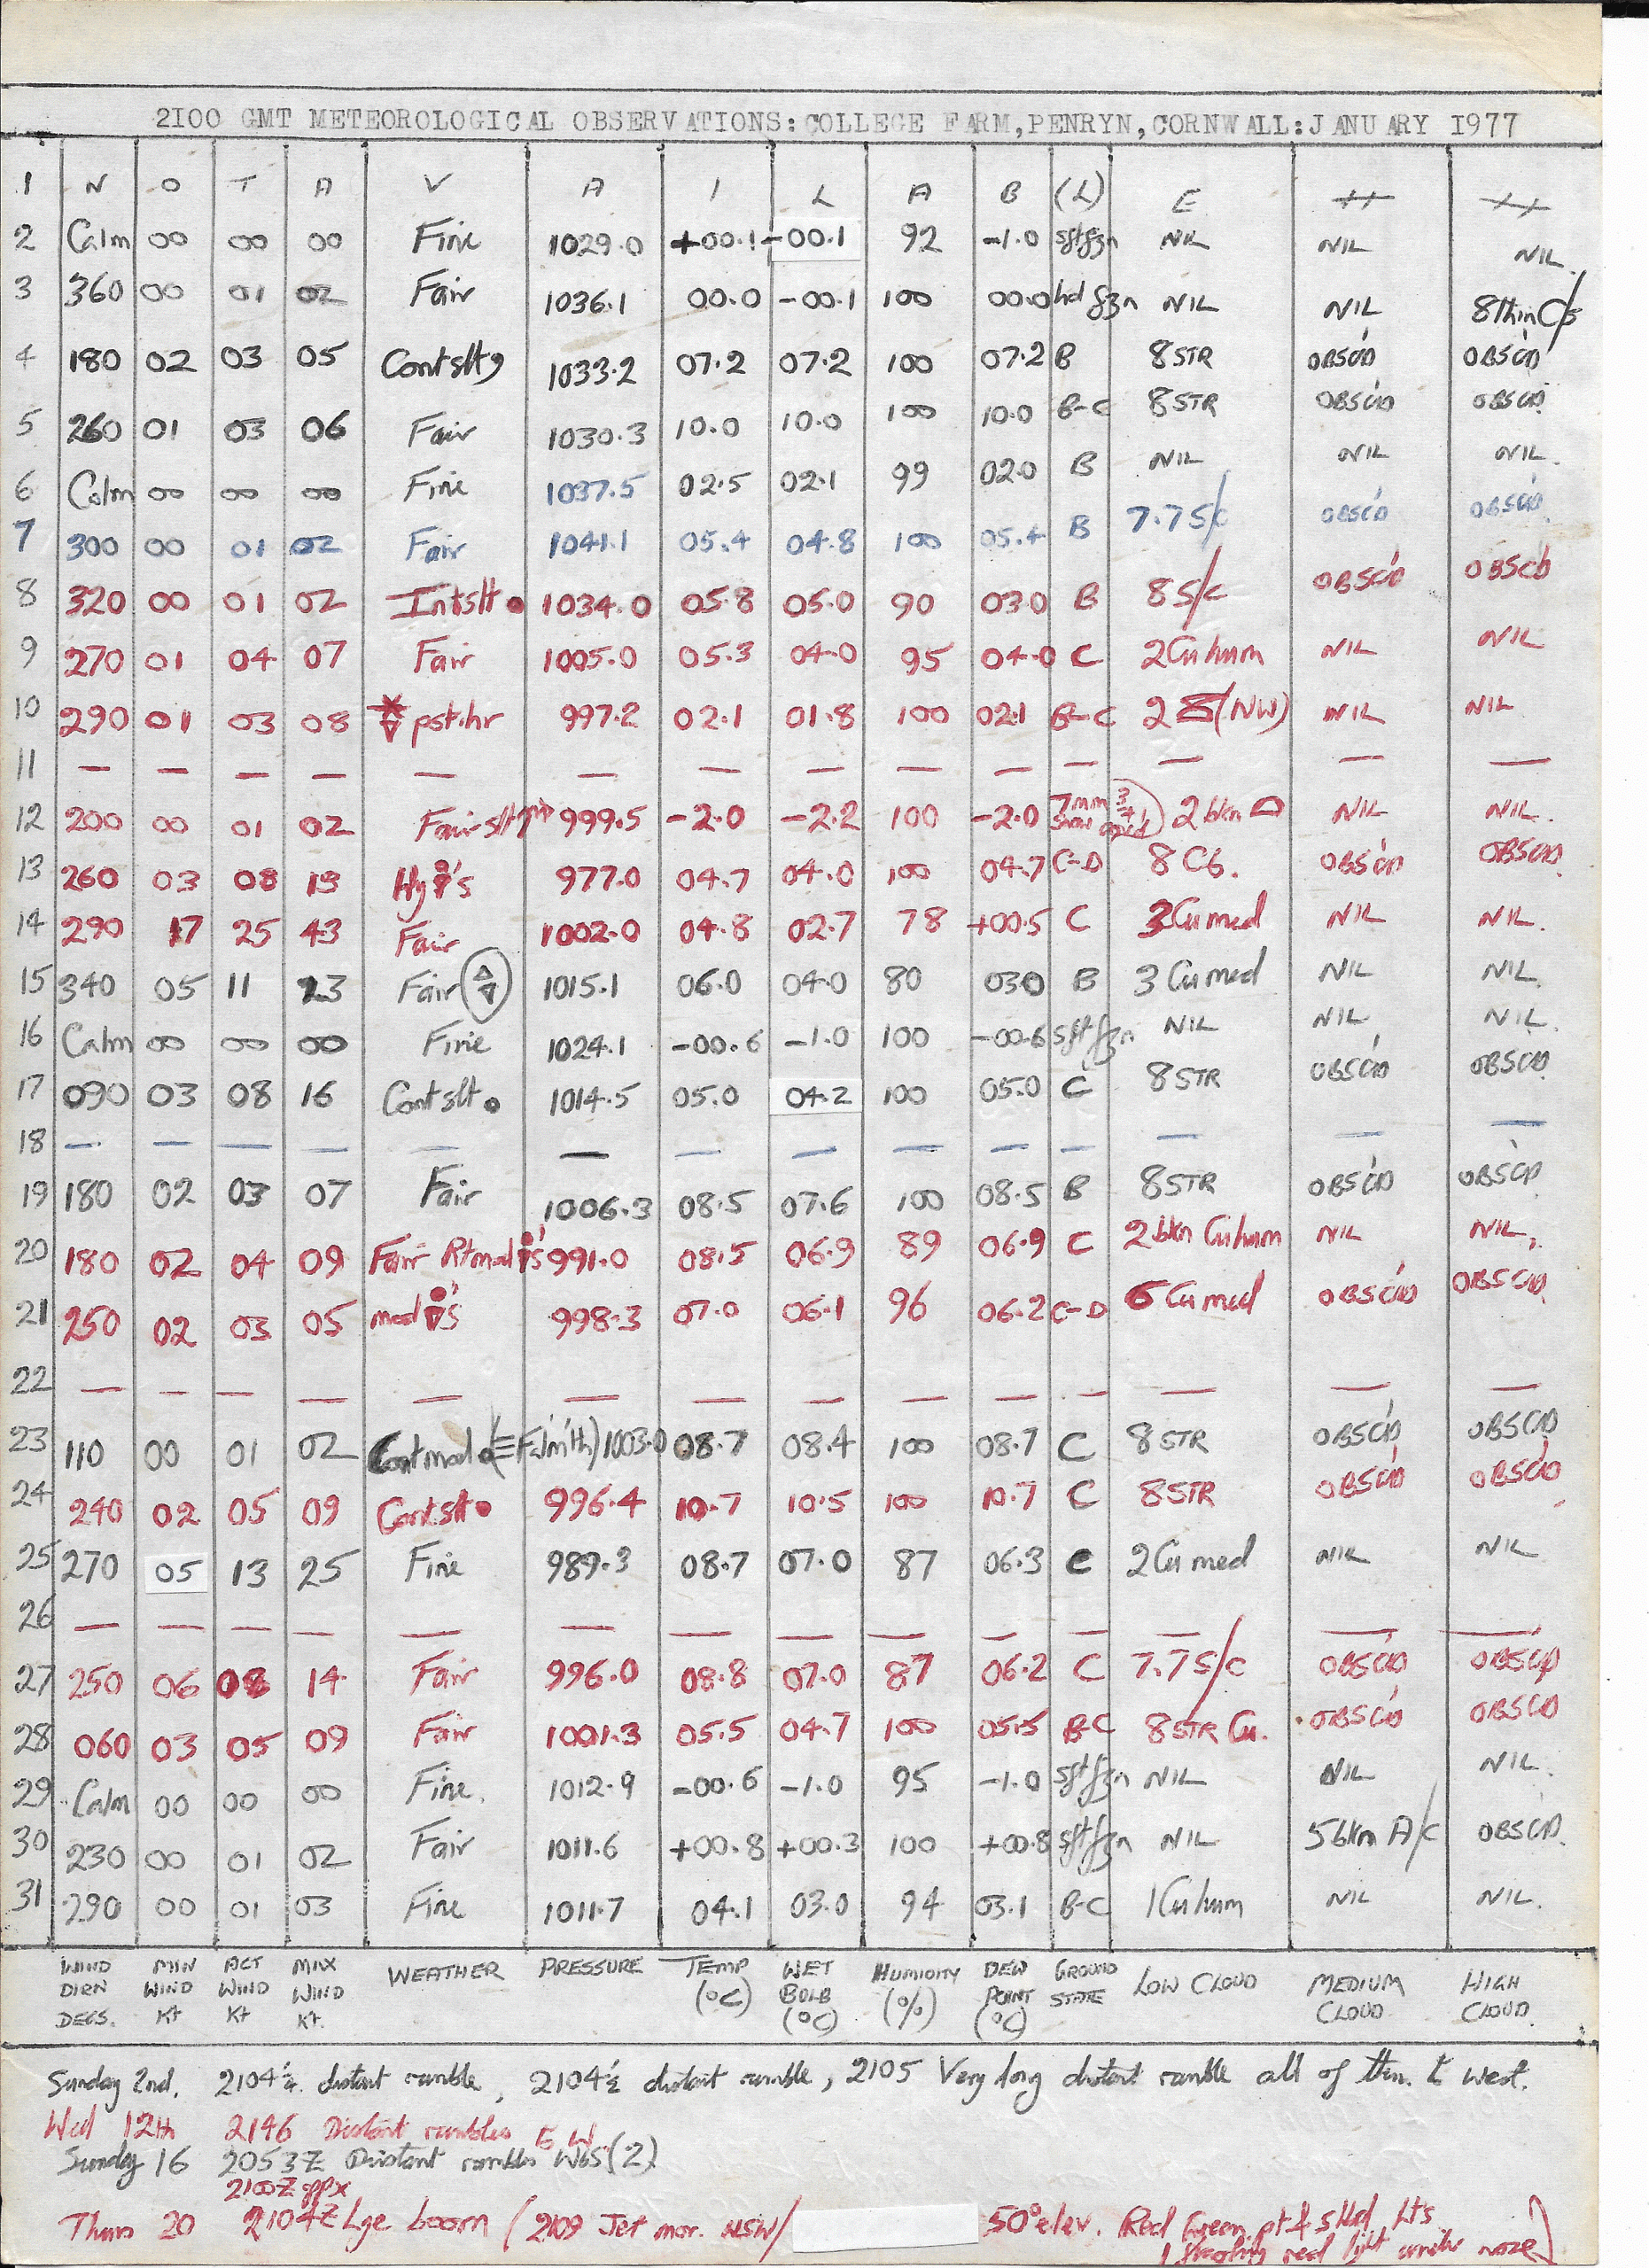 2I00 GMT METEOROLOGICAL OBSERVATIONS:COLLEGE FARM,PENRYN,CORNWALL:JANUARY I977
1 N O T A V A I L A B (L) E
2 Calm 00 00 00 Fine 1029.0 +00.1 -00.1 92 -1.0 sftfzn NIL NIL NIL.
3 360 00 01 02 Fair 1036.1 00.0 -00.1 100 00.0 hd fzn NIL NIL 8 thin C/s
4 180 02 03 05 Contslt, 1033.2 07.2 07.2 100 07.2 B 8 STR OBSC'D OBSC'D
5 260 01 03 06 Fair 1030.3 10.0 10.0 100 10.0 B-C 8 STR OBSC'D OBSC'D
6 Calm 00 00 00 Fine 1037.5 02.5 02.1 99 02.0 B NIL NIL NIL.
7 300 00 01 02 Fair 1041.1 05.4 04.8 100 05.4 B 7.7 S/C OBSC'D OBSC'D
8 320 00 01 02 Intslt ● 1034.0 05.8 05.0 90 03.0 B 8 S/C OBSC'D OBSC'D
9 270 01 04 07 Fair 1005.0 05.3 04.0 95 04.0 C 2 Cu hum NIL NIL
10 290 01 03 08 pst.hr 997.2 02.1 01.8 100 02.1 B-C 2 (NW) NIL NIL
11 — — — — — — — — — — — — — —
12 200 00 01 02 Fair slt 999.5 -2.0 -2.2 100 -2.0 7mm snow 2 bkn NIL NIL.
13 260 03 08 19 Hy 's 977.0 04.7 04.0 100 04.7 C-D 8 Cb. OBSC'D OBSC'D
14 290 17 25 43 Fair 1002.0 04.8 02.7 78 +00.5 C 3 Cu med NIL NIL.
15 340 05 11 23 Fair 1015.1 06.0 04.0 80 03.0 B 3 Cu med NIL NIL.
16 Calm 00 00 00 Fine 1024.1 -00.6 -1.0 100 -00.6 sftfzn NIL NIL NIL.
17 090 03 08 16 Contslt ● 1014.5 05.0 04.2 100 05.0 C 8 STR OBSC'D OBSC'D
18 — — — — — — — — — — — — — —
19 180 02 03 07 Fair 1006.3 08.5 07.6 100 08.5 B 8 STR OBSC'D OBSC'D
20 180 02 04 09 Fair Rtmod 's 991.0 08.5 06.9 89 06.9 C 2 bkn Cu hum NIL NIL.
21 250 02 03 05 mod 's 998.3 07.0 06.1 96 06.2 C-D 6 Cu med OBSC'D OBSC'D
22 — — — — — — — — — — — — — —
23 110 00 01 02 Cont mod ● (≡ Falm'th) 1003.0 08.7 08.4 100 08.7 C 8 STR OBSC'D OBSC'D
24 240 02 05 09 Contslt ● 996.4 10.7 10.5 100 10.7 C 8 STR OBSC'D OBSC'D
25 270 05 13 25 Fine 989.3 08.7 07.0 87 06.3 C 2 Cu med NIL NIL
26 — — — — — — — — — — — — — —
27 250 06 08 14 Fair 996.0 08.8 07.0 87 06.2 C 7.7 S/C OBSC'D OBSC'D
28 060 03 05 09 Fair 1001.3 05.5 04.7 100 05.5 B-C 8 STR Cu. OBSC'D OBSC'D
29 Calm 00 00 00 Fine. 1012.9 -00.6 -1.0 95 -1.0 sftfzn NIL NIL NIL.
30 230 00 01 02 Fair 1011.6 +00.8 +00.3 100 +00.8 sftfzn NIL 5 bkn A/C OBSC'D.
31 290 00 01 03 Fine 1011.7 04.1 03.0 94 03.1 B-C 1 Cu hum NIL NIL.
WIND DIRN DEGS. MIN WIND Kt ACT WIND Kt MAX WIND Kt. WEATHER PRESSURE TEMP (°C) WET BULB (°C) HUMIDITY (%) DEW POINT (°C) GROUND STATE LOW CLOUD MEDIUM CLOUD HIGH CLOUD.
Sunday 2nd. 2104¼ distant rumble, 2104½ distant rumble, 2105 Very long distant rumble all of them to West.
Wed 12th 2146 Distant rumbles W.
Sunday 16 2053Z Distant rumbles WbS (2)
2100Z appx
Thurs 20 2104Z Lge boom (2109 Jet mov. NSW/ 50° elev. Red Green pt & stbd Lts
1 red light under nose)